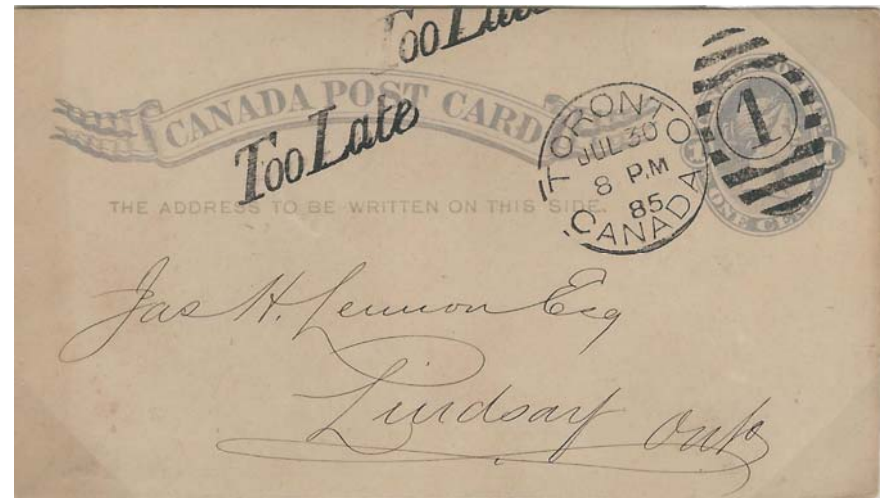 Too Late
CANADA POST CARD
Too Late
TORONTO
JUL 30
8 P.M
85
CANADA
1
ONE CENT
THE ADDRESS TO BE WRITTEN ON THIS SIDE.
Jas H. Lennon Esq
Lindsay Ont